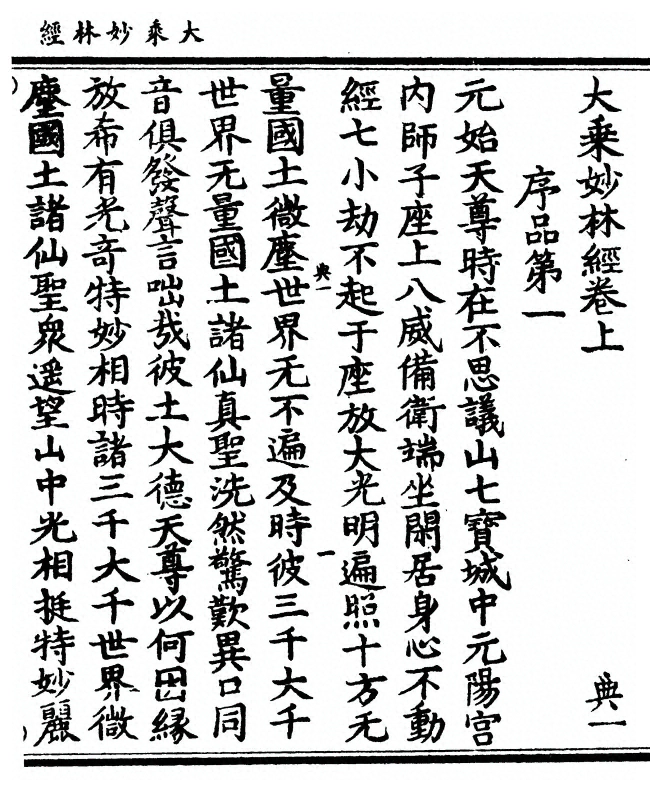 大乘妙林經
大乘妙林經卷上
典一
序品第一
元始天尊時在不思議山七寶城中元陽宮
内師子座上八威備衛端坐閑居身心不動
經七小劫不起于座放大光明遍照十方无
典一
一
量國土微塵世界无不遍及時彼三千大千
世界无量國土諸仙真聖洗然驚歎異口同
音俱發聲言咄哉彼土大德天尊以何因緣
放希有光奇特妙相時諸三千大千世界微
塵國土諸仙聖衆遥望山中光相挺特妙麗